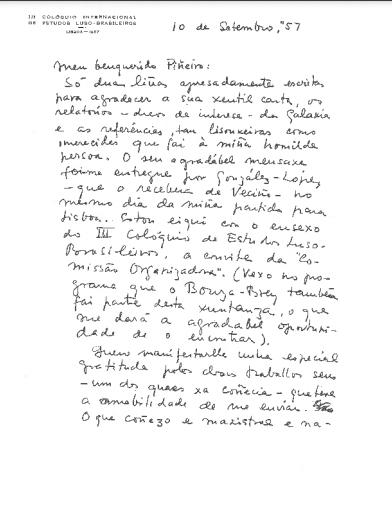 III COLÓQUIO INTERNACIONAL
DE ESTUDOS LUSO-BRASILEIROS
LISBOA - 1957
10 de Setembro, '57
Meu benquerido Piñeiro:
Só duas liñas apresadamente escritas
para agradecer a sua xentil carta, os
relatórios - cheos de interese - da Galaxia
e as referências, tan lisonxeiras como
imerecidas que fai à miña homilde
persoa. O seu agradábel mensaxe
foime entregue por González-López
- que o recebera de Veciño - no
mesmo dia da miña partida para
Lisboa. Estou eiqui con o ensexo
do III Colóquio de Estudos Luso-
Brasileiros, a convite da "Co-
missão Organizadora". (Vexo no pro-
grama que o Bouza-Brey também
fai parte desta xuntanza, o que
me dará a agradabel oportuni-
dade de o encontrar).
Quero manifestarlle unha especial
gratitude polos dous traballos seus
- un dos quaes xa coñecia - que teve
a amabilidade de me enviar.
O que coñezo é maxistral e na-